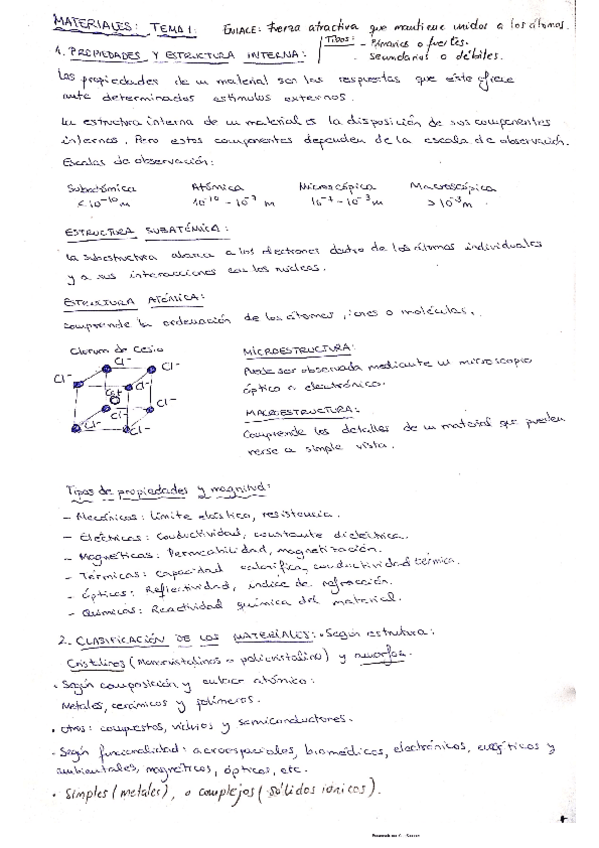 MATERIALES: TEMA 1: ENLACE: Fuerza atractiva que mantiene unidos a los átomos.
Tipos: - Primarios o fuertes.
- secundarios o débiles.
1. PROPIEDADES Y ESTRUCTURA INTERNA:
Las propiedades de un material son las respuestas que éste ofrece
ante determinados estímulos externos.
La estructura interna de un material es la disposición de sus componentes
internos. Pero estos componentes dependen de la escala de observación.
Escalas de observación:
Subatómica Atómica Microscópica Macroscópica
< 10⁻¹⁰ m 10⁻¹⁰ - 10⁻⁷ m 10⁻⁷ - 10⁻³ m > 10⁻³ m
ESTRUCTURA SUBATÓMICA:
La subestructura abarca a los electrones dentro de los átomos individuales
y a sus interacciones con los núcleos.
ESTRUCTURA ATÓMICA:
Comprende la ordenación de los átomos, iones o moléculas.
Clorum de Cesio
Cl-
Cl-
Cl-
Cl-
Cs+
Cl-
Cl-
Cl-
Cl-
MICROESTRUCTURA:
Puede ser observada mediante un microscopio
óptico o electrónico.
MACROESTRUCTURA:
Comprende los detalles de un material que pueden
verse a simple vista.
Tipos de propiedades y magnitud:
- Mecánicas: límite elástico, resistencia.
- Eléctricas: Conductividad, constante dieléctrica.
- Magnéticas: Permeabilidad, magnetización.
- Térmicas: Capacidad calorífica, conductividad térmica.
- Ópticas: Reflectividad, índice de refracción.
- Químicas: Reactividad química del material.
2. CLASIFICACIÓN DE LOS MATERIALES: • Según estrutura:
Cristalinos (Monocristalinos o policristalino) y amorfos.
• Según composición y enlace atómico:
Metales, cerámicos y polímeros.
• Otros: compuestos, vidrios y semiconductores.
• Según funcionalidad: aeroespaciales, biomédicos, electrónicos, energéticos y
ambientales, magnéticos, ópticos, etc.
• Simples (metales), o complejos (sólidos iónicos).